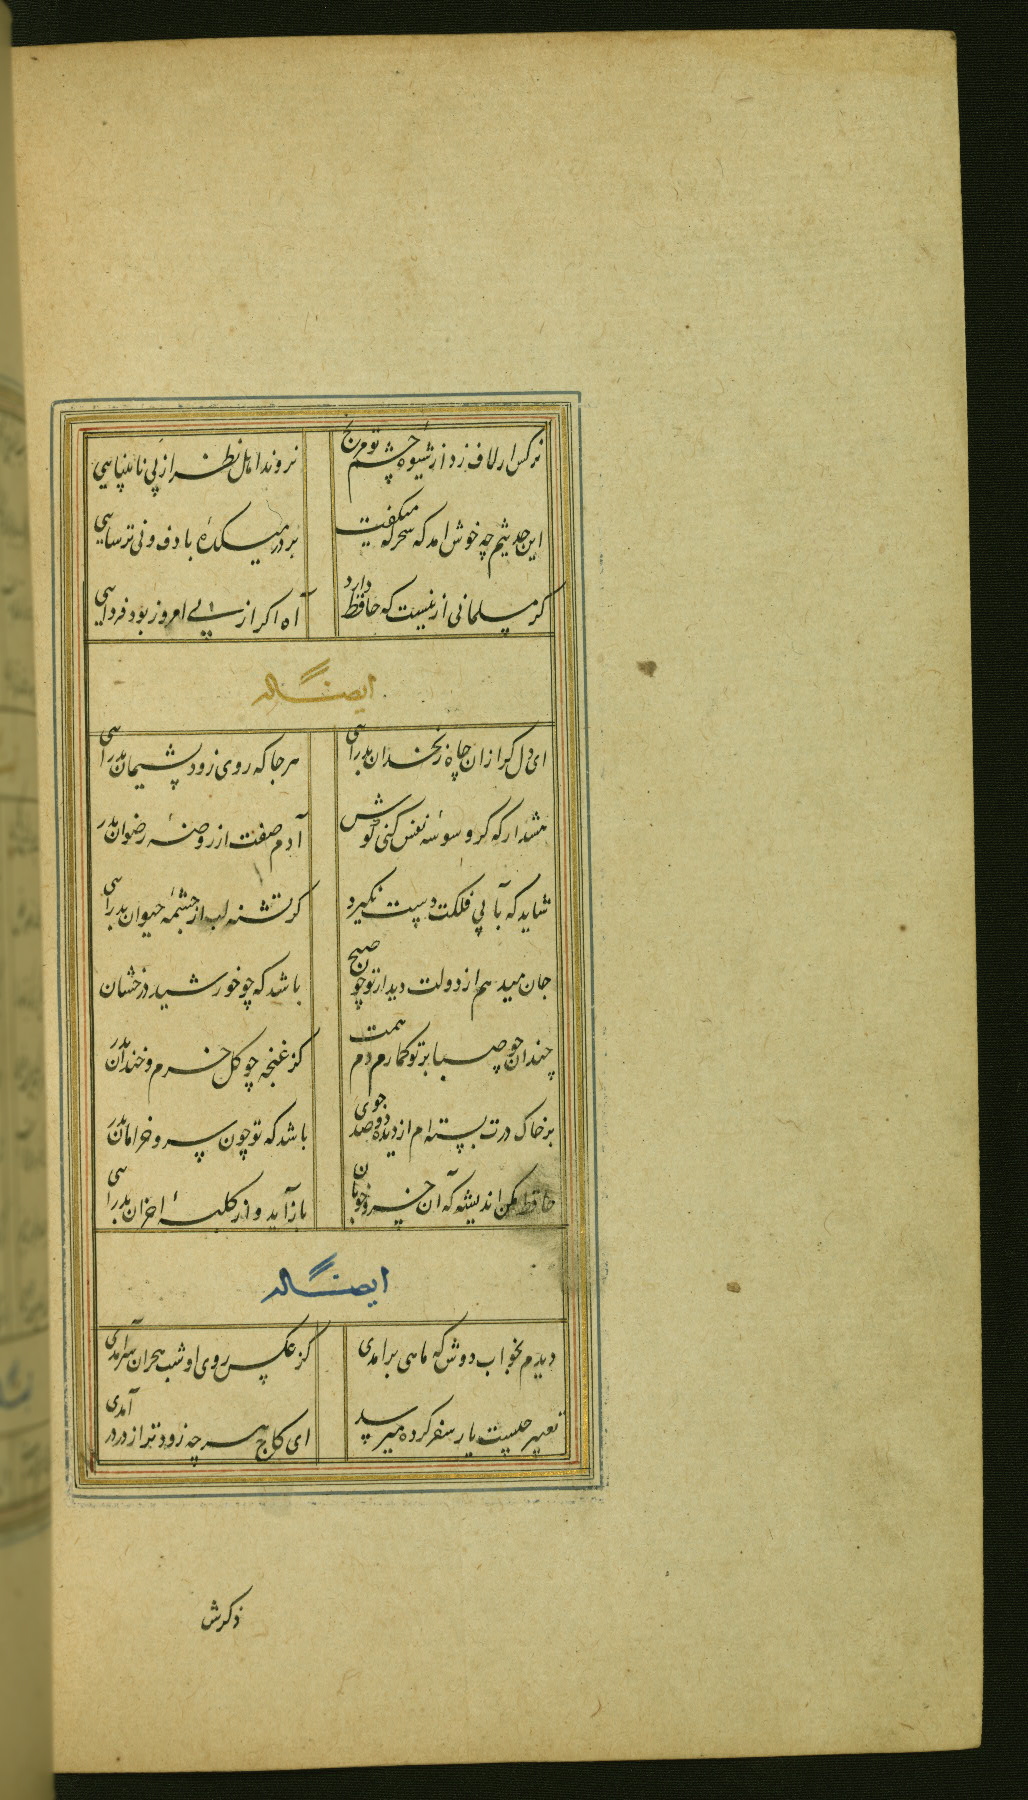 نرکس ار لاف زد از شیوه چشم تو مرنج
نروند اهل نظر از پی نابینایی
این حدیثم چه خوش امد که سحرکه میکفت
بر در میکدهٔ با دف و نی ترسایی
کر مسلمانی ازینست که حافظ دارد
آه اکر از پی امروز بود فردایی
ایضاله
ای دل کر ازان چاه زنخدان بدرایی
هر جا که روی زود پشیمان بدرایی
هشدار که کر وسوسه نفس کنی کوش
آدم صفت از روضه رضوان بدر
شاید که بآبی فلکت دست نکیرد
کر تشنه لب از چشمه حیوان بدرایی
جان میدهم از دولت دیدار تو چون صبح
باشد که چو خورشید درخشان
چندان چو صبا بر تو کمارم دم همت
کز غنچه چو کل خرم و خندان بدر
بر خاک درت بسته ام از دیده دو صد جوی
باشد که تو چون سرو خرامان بدر
حافظ مکن اندیشه که آن خسرو خوبان
بازآید و از کلبهٔ احزان بدرایی
ایضاله
دیدم بخواب دوش که ماهی برامدی
کز عکس روی او شب هجران سرآمدی
تعبیر چیست یار سفر کرده میرسد
ای کاج هر چه زودتر از در در آمدی
ذکرش